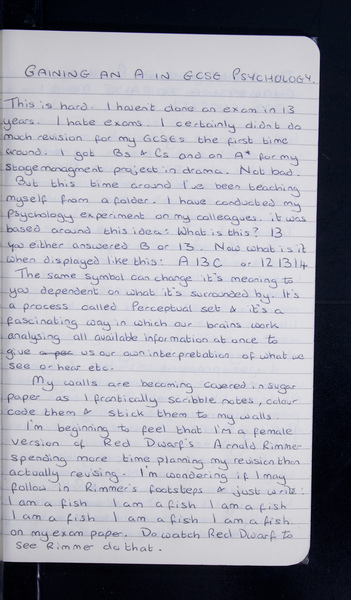 GAINING AN A IN GCSE PSYCHOLOGY.
This is hard. I havent done an exam in 13
years. I hate exams. I certainly didnt do
much revision for my GCSEs the first time
around. I got Bs & Cs and an A* for my
stage managment project in drama. Not bad.
But this time around I've been teaching
myself from a folder. I have conducted my
psychology experiment on my colleagues. it was
based around this idea: What is this? 13
you either answered B or 13. Now what is it
when displayed like this: A 13 C or 12 13 14
The same symbol can change it's meaning to
you dependent on what it's surrounded by. It's
a process called Perceptual set & it's a
fascinating way in which our brains work
analysing all available information at once to
give a per us our own interpretation of what we
see or hear etc.
My walls are becoming covered in sugar
paper as I frantically scribble notes, colour
code them & stick them to my walls.
I'm beginning to feel that I'm a female
version of Red Dwarf's Arnold Rimmer
spending more time planning my revision than
actually revising. I'm wondering if I may
follow in Rimmer's footsteps & just write:
I am a fish I am a fish I am a fish
I am a fish I am a fish I am a fish.
on my exam paper. Do watch Red Dwarf to
see Rimmer do that.